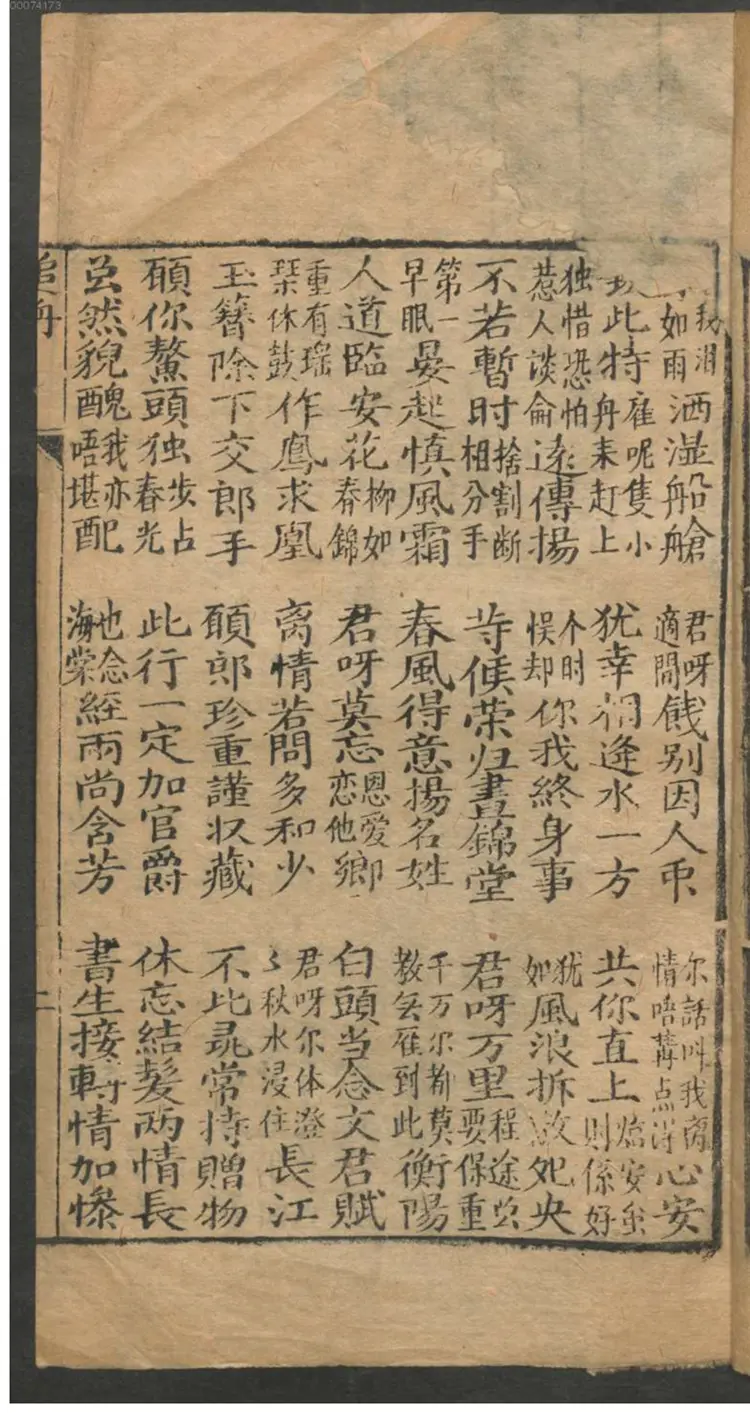 我泪如雨洒湿船艙 君呀適間餞别因人帀 尔話叫我离情唔搆点得心安
此特雇呢隻小舟来赶上 犹幸相逢水一方 共你直上臨安虽則係好
独惜恐怕惹人談侖远傳揚 个时悮却你我終身事 犹如風浪拆散央
不若暫时捨割断相分手 等候荣归晝錦堂 君呀万里程途要保重
第一早眠晏起慎風霜 春風得意揚名姓 千万尔都莫教雁到此衡陽
人道臨安花柳如春錦 君呀莫忘恩爱恋他鄉 白頭当念文君賦
重有瑶琹休鼓作鳳求凰 离情若問多和少 君呀尔体澄々秋水浸住長江
玉簪除下交郎手 願郎珍重謹収藏 不比尋常持贈物
願你鰲頭独步占春光 此行一定加官爵 休忘結髮两情長
虽然貌醜我亦唔堪配 也念海棠經雨尚含芳 書生接轉情加惨
追舟
二
00074173